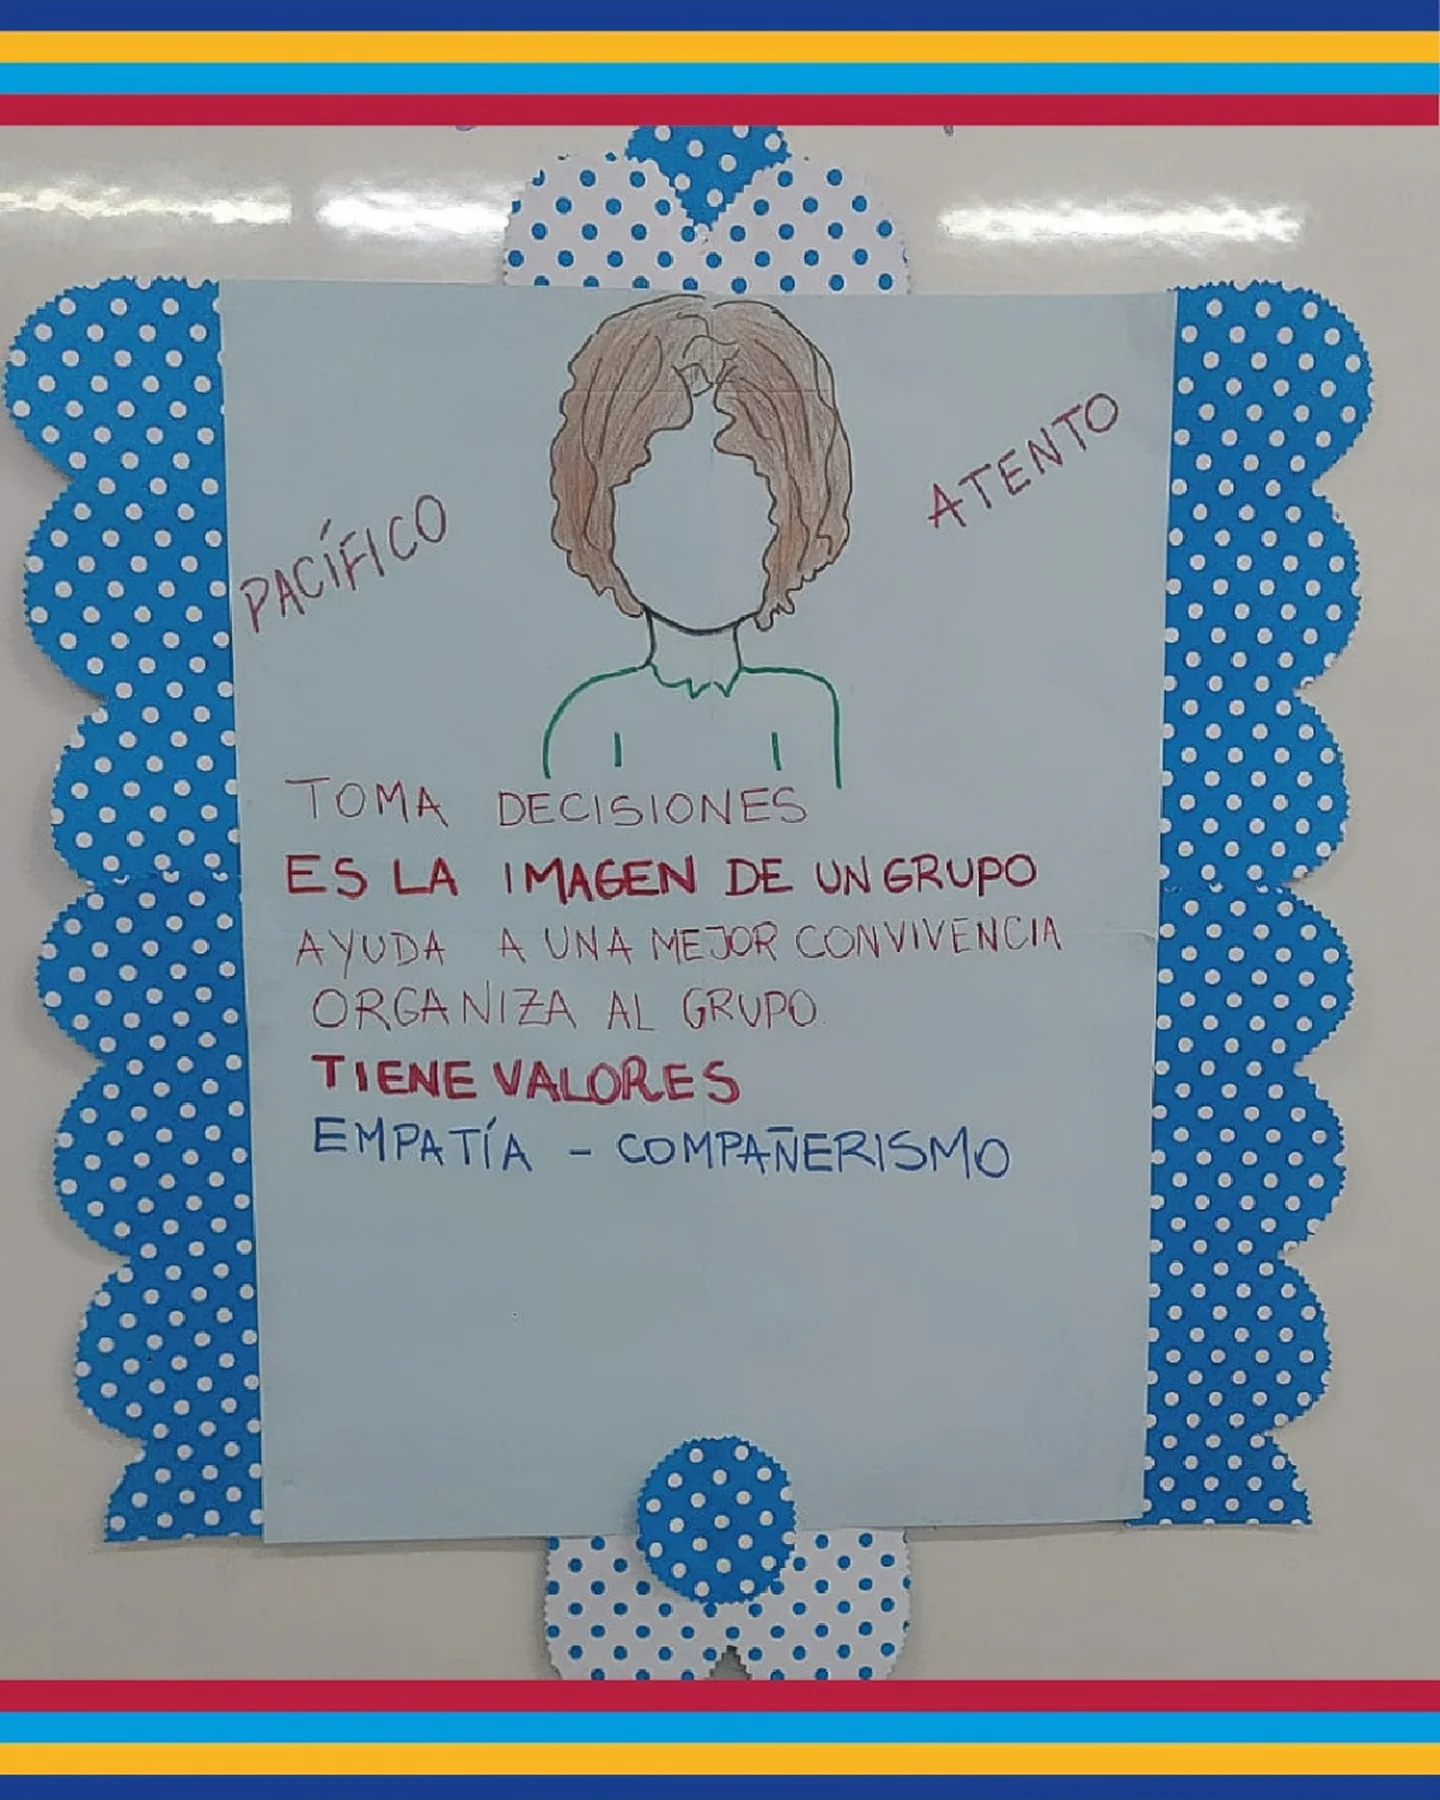 PACÍFICO
ATENTO
TOMA DECISIONES
ES LA IMAGEN DE UN GRUPO
AYUDA A UNA MEJOR CONVIVENCIA
ORGANIZA AL GRUPO
TIENE VALORES
EMPATÍA - COMPAÑERISMO